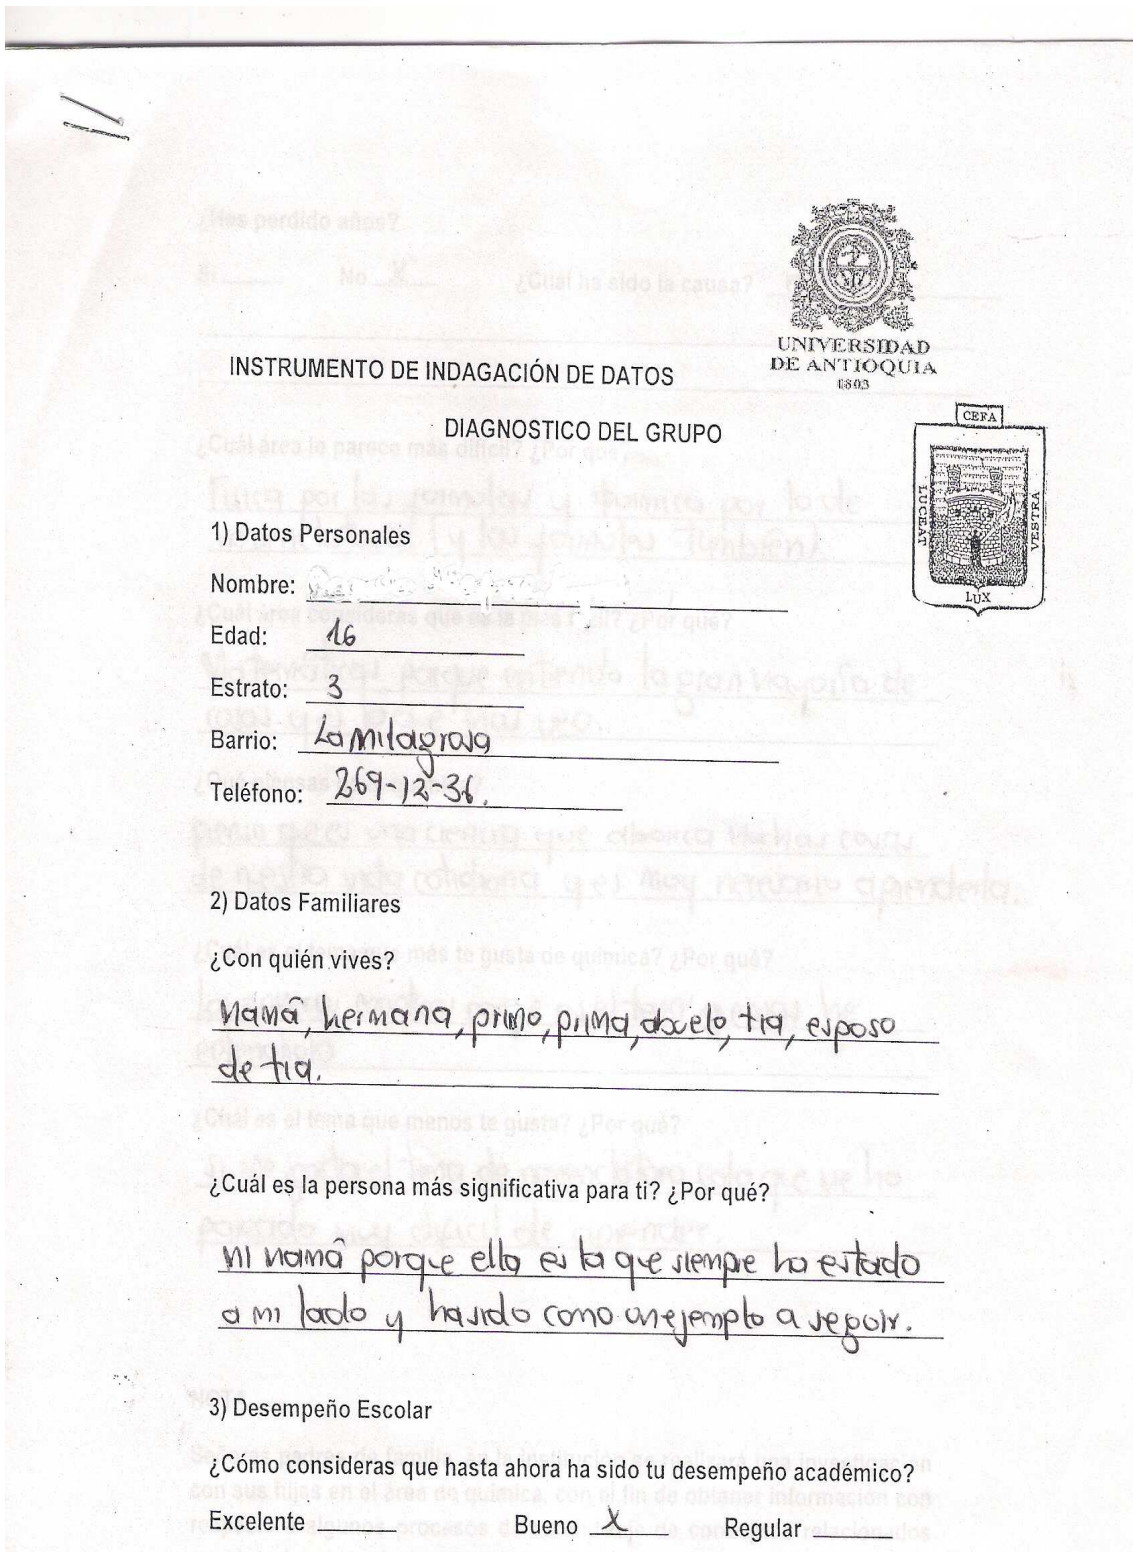 UNIVERSIDAD
DE ANTIOQUIA
1803
INSTRUMENTO DE INDAGACIÓN DE DATOS
CEFA
LUCEAT
VESTRA
LUX
DIAGNOSTICO DEL GRUPO
1) Datos Personales
Nombre:
Edad: 16
Estrato: 3
Barrio: La Milagrosa
Teléfono: 269-12-36.
2) Datos Familiares
¿Con quién vives?
Mamá, hermana, primo, prima, abuelo, tia, esposo
de tia.
¿Cuál es la persona más significativa para ti? ¿Por qué?
Mi mamá porque ella es la que siempre ha estado
a mi lado y ha sido como un ejemplo a seguir.
3) Desempeño Escolar
¿Cómo consideras que hasta ahora ha sido tu desempeño académico?
Excelente ______ Bueno X Regular ______